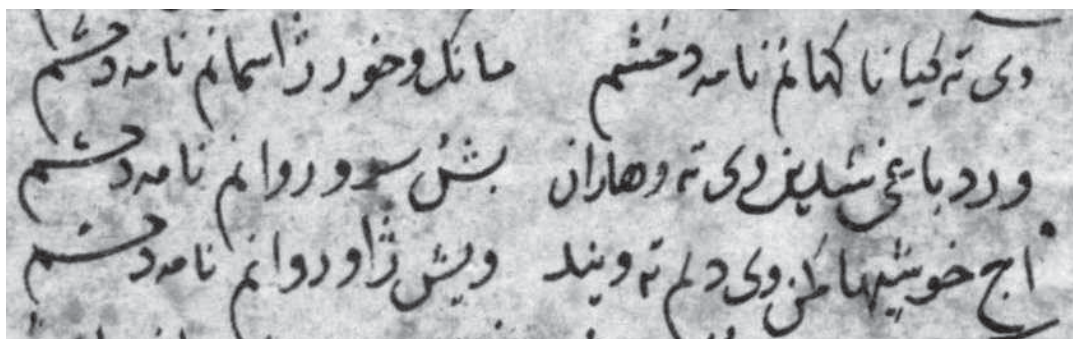 وی ته کیانا کهانم نامه دخشم مانک و خور ژاسمانم نامه دخشم
ورد باغی شدین وی ته وهاران بشن سرو روانم نامه دخشم
اج خوشیها کمن وی دلم ته ویند ویش ژاو روانم نامه دخشم